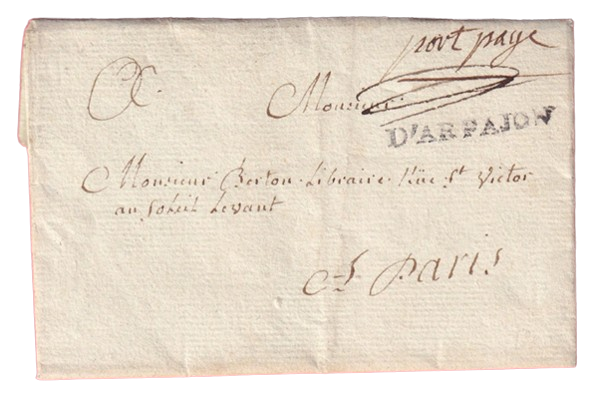 port paye
A
Monsieur
D'ARPAJON
Monsieur Berton Libraire Rüe St Victor
au Soleil Levant
Paris